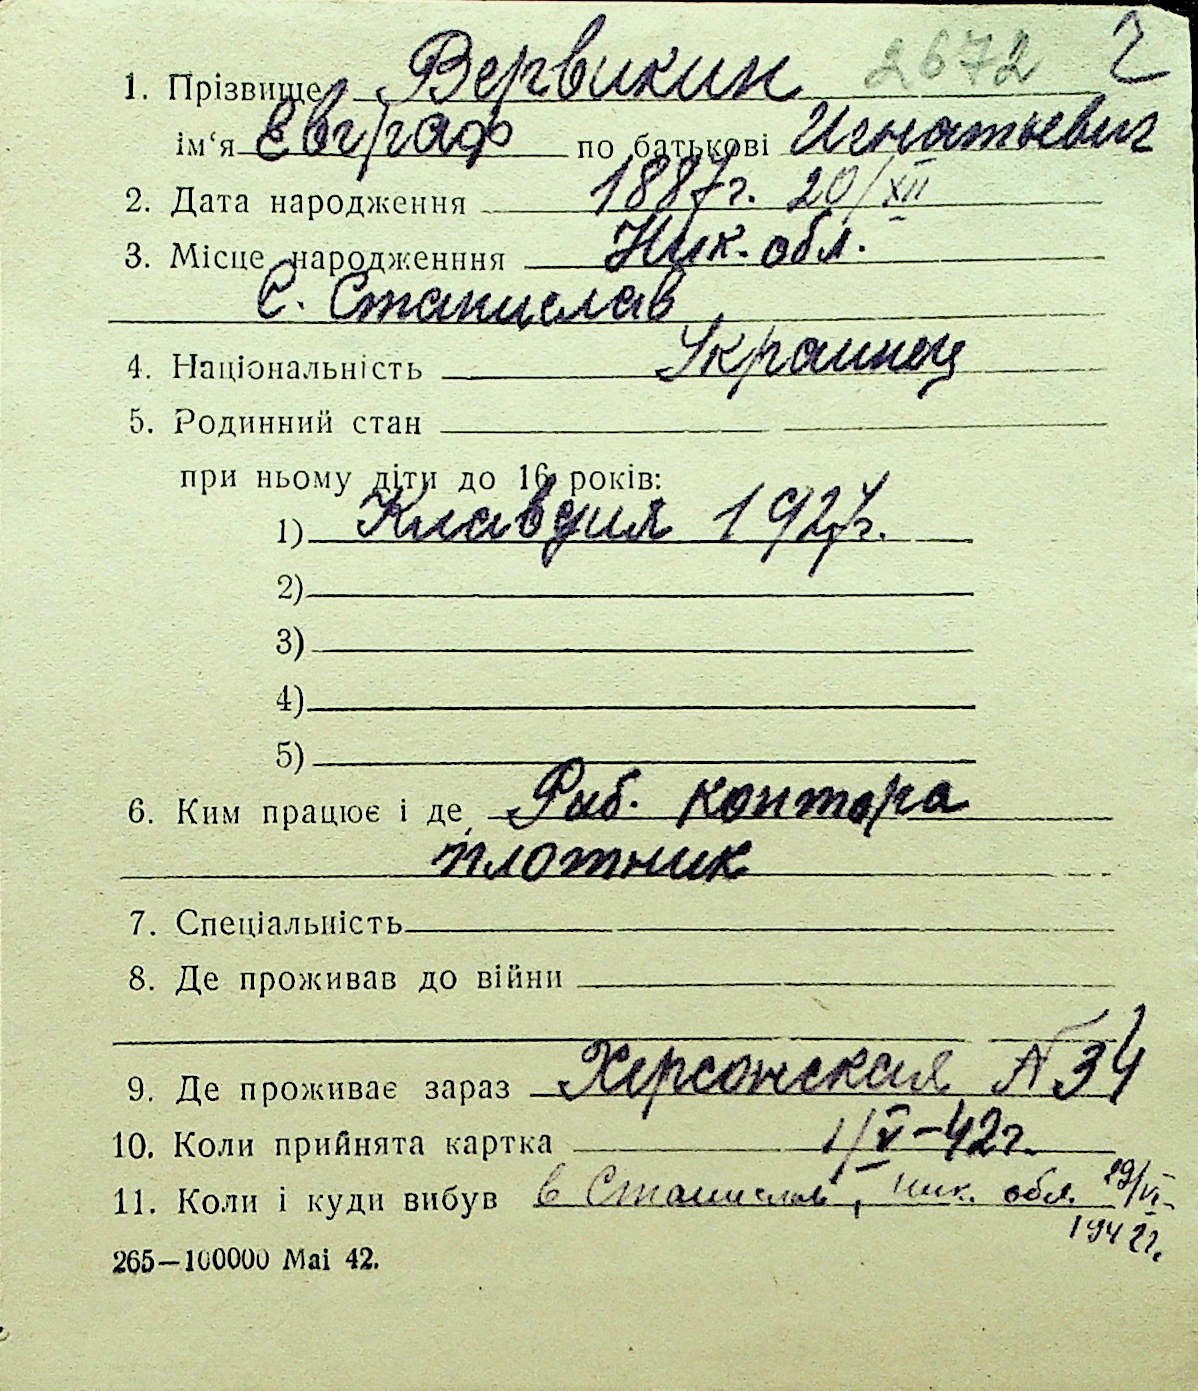 2672 2
1. Прізвище Вервикин
ім‘я Евграф по батькові Игнатьевич
2. Дата народження 1887г. 20/XII
3. Місце народженння Ник. обл.
с. Станислав
4. Національність Украинец
5. Родинний стан
при ньому діти до 16 років:
1) Клавдия 1927г.
2)
3)
4)
5)
6. Ким працює і де Рыб. контора
плотник
7. Спеціальність
8. Де проживав до війни
9. Де проживає зараз Херсонская №34
10. Коли прийнята картка 1/V-42г.
11. Коли і куди вибув в Станислав, Ник. обл. 19/VI
1942г.
265—100000 Mai 42.